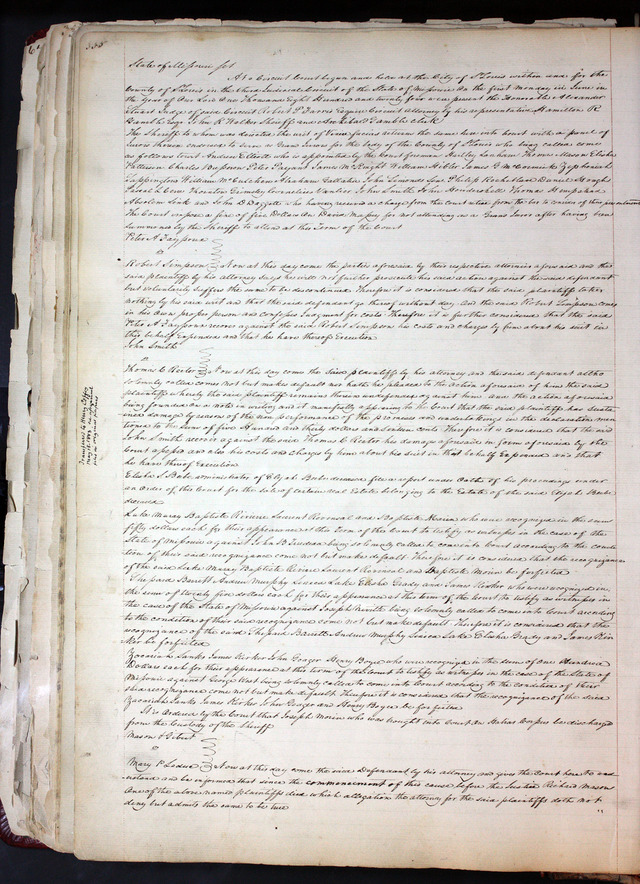 333
State of Missouri Sct
At a Circuit Court begun and held at the City of St Louis within and for the
County of St Louis in the third Judicial Circuit of the State of Missouri on the first Monday in June in
the Year of our Lord One Thousand Eight Hundred and twenty four were present the Honorable Alexander
Stuart Judge of said Circuit Robert P Farris Esquire Circuit Attorney by his representative Hamilton R
Gamble Esqr John K Walker Sheriff and Archibald Gamble Clerk
The Sheriff to whom was directed the writ of Venire facias returns the same here into Court with a panel of
Jurors thereon endorsed to serve as Grand Jurors for the body of the County of St Louis who being called came
as follows to wit Andrew Elliott who is appointed by the Court foreman Thomas Mason Elisha
Patterson Charles Peter James McKnight William James Zephaniah
Sappington William McCutchen Abraham Gallatin John Simonds Junr Philip Rochblave Daniel Hough
Thornton Grimsley Cornelius John Smith John Thomas Hempstead
Absolem Link and John D Daggett who having received a charge from the Court retire from the bar to consider of their presentments
The Court impose a fine of five Dollars on David Massey for not attending as a Grand Juror after having been
summoned by the Sheriff to attend at this Term of the Court
Peter A
vs
Robert Simpson Now at this day come the parties aforesaid by their respective attornies aforesaid and the
said plaintiff by his attorney says he will not further prosecute his said action against the said defendant
but voluntarily suffers the same to be discontinued Therefore it is considered that the said plaintiff take
nothing by his said writ and that the said defendant go thereof without day And the said Robert Simpson comes
in his own proper person and confesses Judgment for costs Therefore it is further considered that the said
Peter A recover against the said Robert Simpson his costs and charges by him about his suit in
this behalf Expended and that he have thereof Execution
John Smith
vs
Thomas C Rector Now at this day comes the said plaintiff by his attorney and the said defendant altho
solemnly called comes not but makes default nor hath he pleaded to the action aforesaid of him the said
plaintiff whereby the said plaintiff remains therein undefended against him and the action aforesaid
being founded on a note in writing and it manifestly appearing to the Court that the said plaintiff has sustai
ned damage by reason of the non performance of the promises and undertakings in the declaration men
tioned to the sum of five Hundred and thirty dollars and sixteen cents Therefore it is considered that the said
John Smith recover against the said Thomas C Rector his damage aforesaid in form aforesaid by the
Court assessed and also his costs and charges by him about his suit in this behalf Expended and that
he have thereof Execution
Elisha S Bebe administrator of Elijah Bebe deceased files a report under Oath of his proceedings under
an Order of this Court for the sale of certain real Estate belonging to the Estate of the said Elijah Bebe
deceased
Luke Muray Baptiste Riviere Laurent and Baptiste Morin who were recognized in the sum
fifty dollars each for their appearance at this term of the Court to testify as witnesses in the case of the
State of Missouri against John B being solemnly called to come into Court according to the condi
tion of their said recognizance come not but make default Therefore it is considered that the recognizance
of the said Luke Muray Baptiste Riviere Laurent and Baptiste Morin be forfeited
Shepard Barrett Andrew Murphy Simeon Lake Elisha Brady and James Rinker who were recognized in
the sum of twenty five dollars each for their appearance at this term of the Court to testify as witnesses in
the case of the State of Missouri against Joseph being solemnly called to come into Court according
to the condition of their said recognizance come not but make default Therefore it is considered that the
recognizance of the said Shepard Barrett Andrew Murphy Simeon Lake Elisha Brady and James Rin
ker be forfeited
Zacariah Sanks James Risker John Gonzer Henry Boyce who were recognized in the sum of One Hundred
Dollars each for their appearance at this term of the Court to testify as witnesses in the case of the State of
Missouri against George being solemnly called to come into Court according to the condition of their
said recognizance come not but make default Therefore it is considered that the recognizance of the said
Zacariah Sanks James Risker John Gonzer and Henry Boyce be forfeited
It is Ordered by the Court that Joseph Morin who was brought into Court on Habeas Corpus be discharged
from the custody of the Sheriff
Mason &
vs
Mary P Leduc Now at this day come the said Defendant by his attorney and gives the Court here to und
erstand and be informed that since the commencement of this cause before the Justice Richard Mason
One of the above named plaintiffs died which allegation the attorney for the said plaintiffs doth not
deny but admits the same to be true